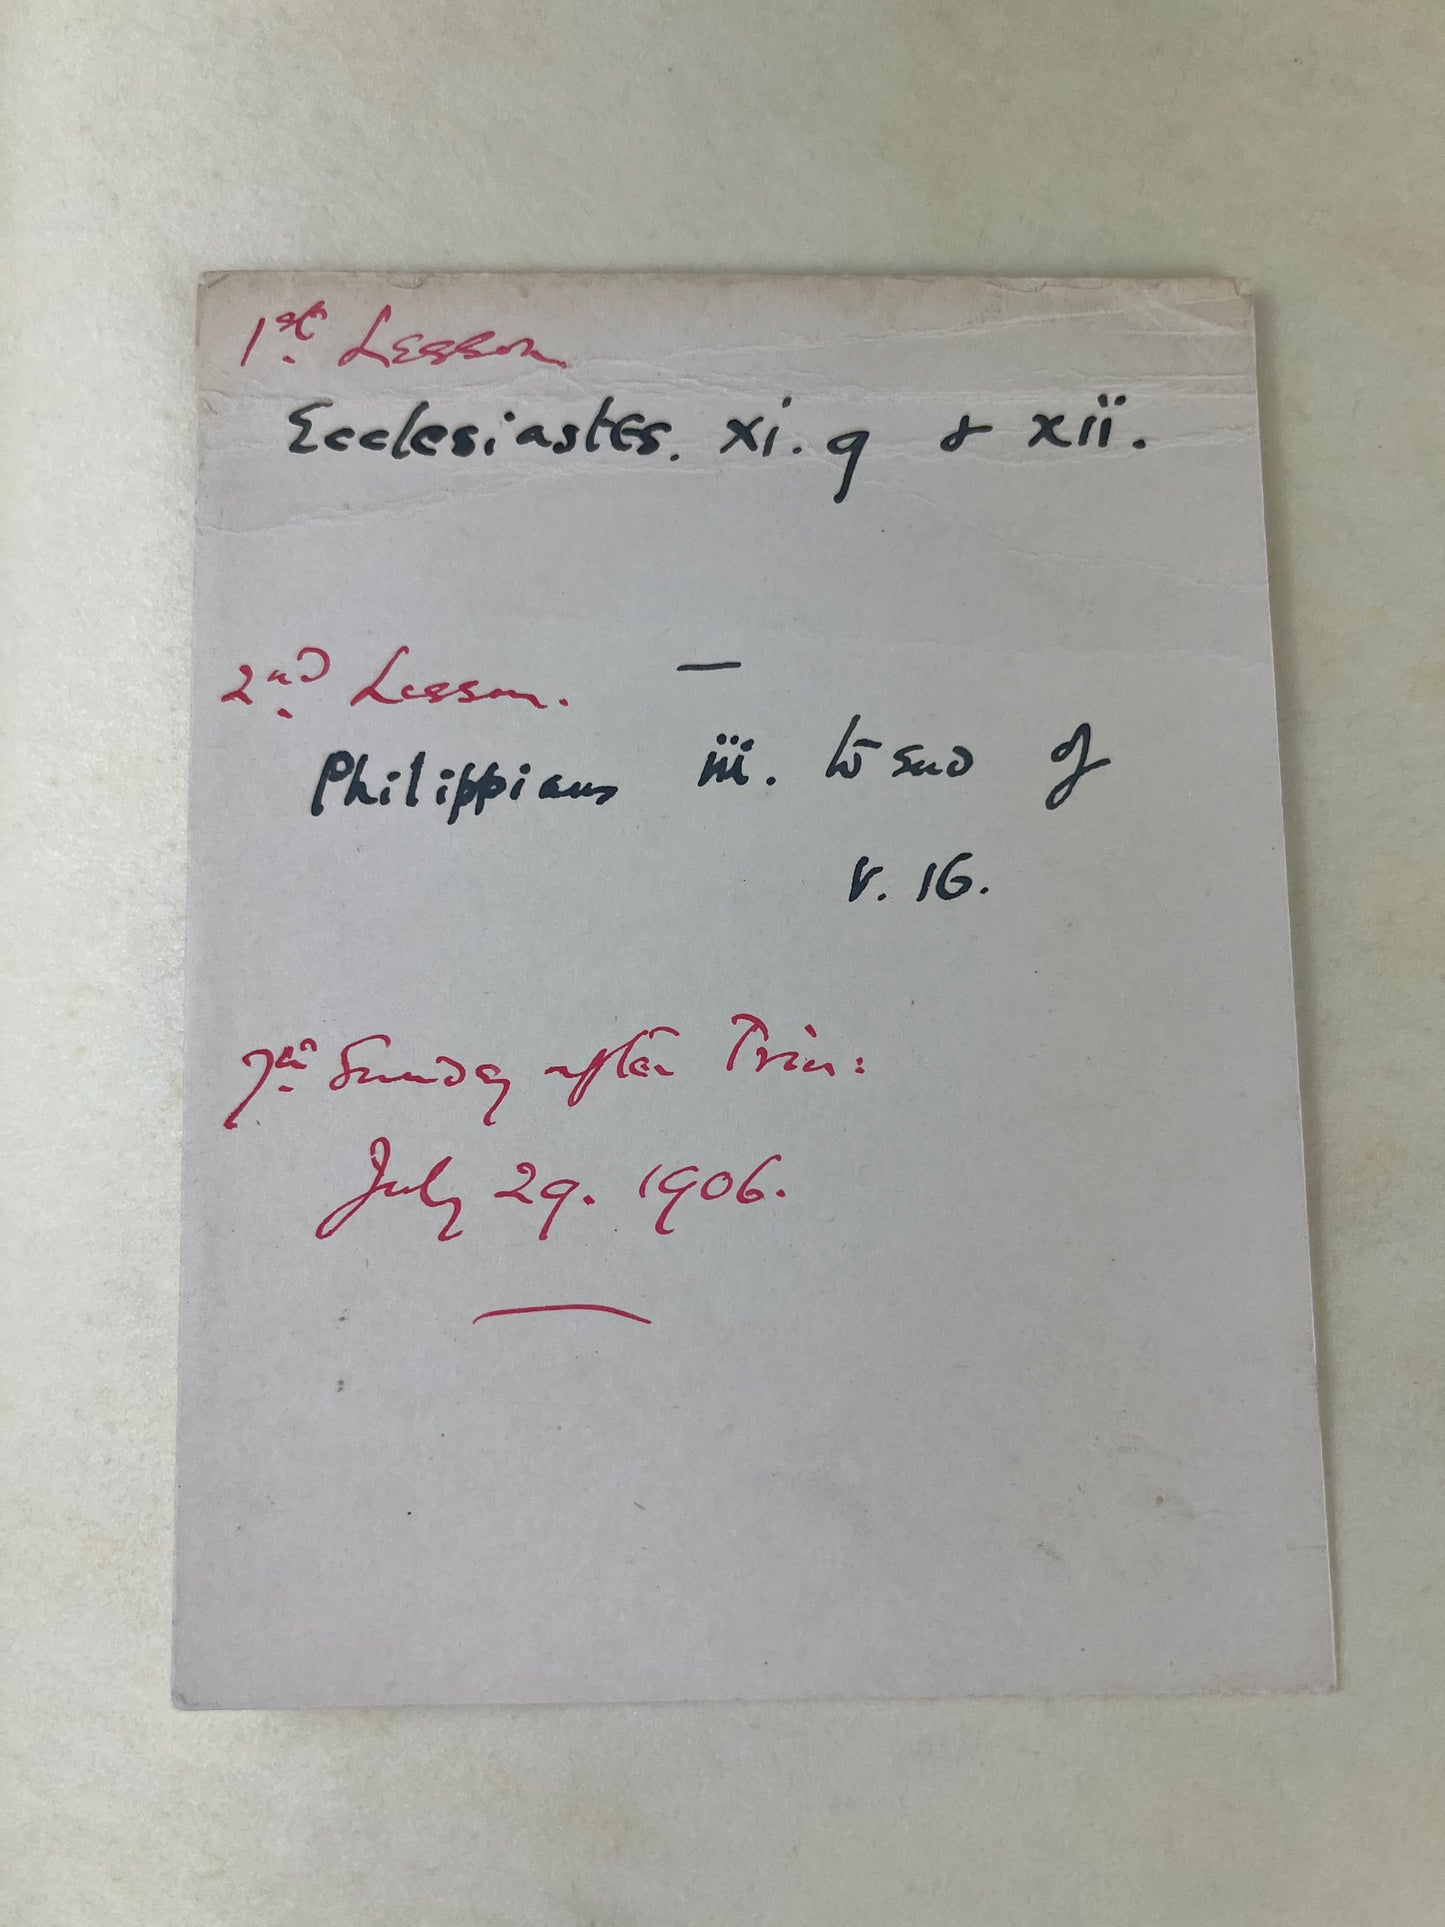 1st. Lesson
Ecclesiastes. xi. 9 & xii.
2nd. Lesson. —
Philippians iii. to end of
v. 16.
7th. Sunday after Trin:
July 29. 1906.